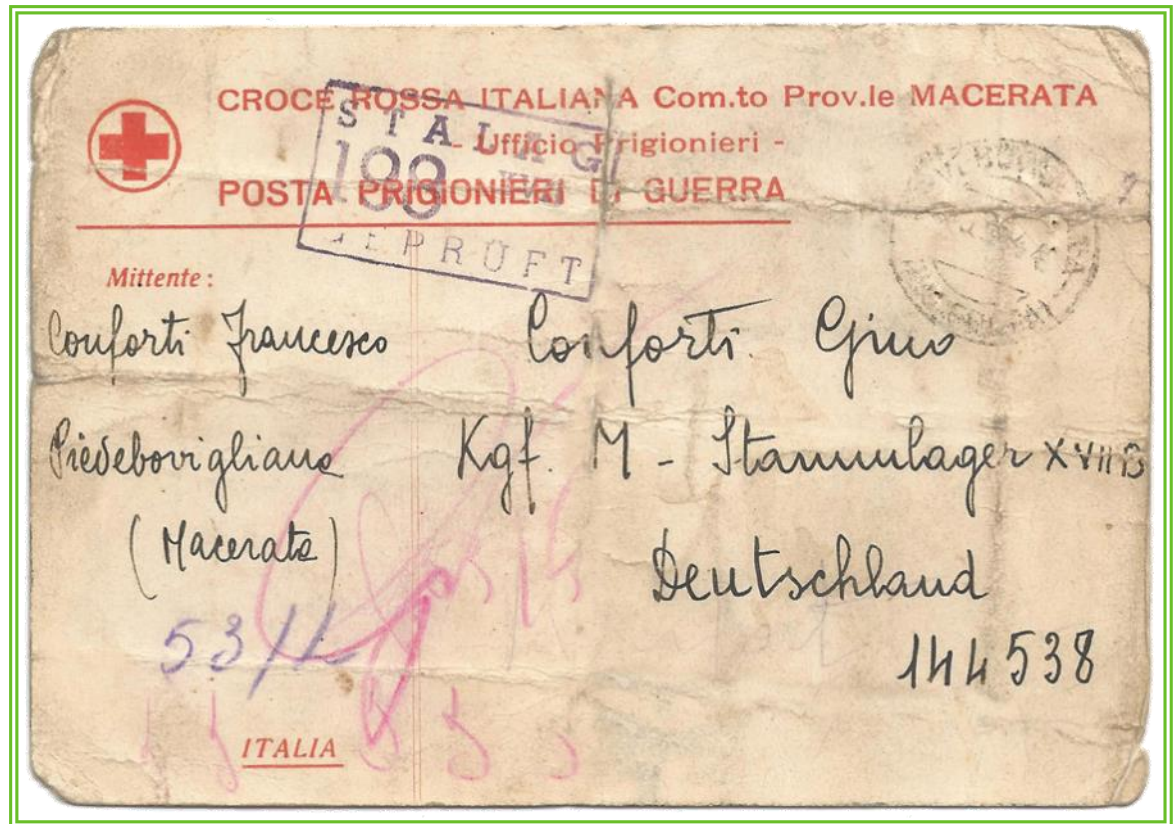 CROCE ROSSA ITALIANA Com.to Prov.le MACERATA
- Ufficio Prigionieri -
POSTA PRIGIONIERI DI GUERRA
STALAG
GEPRÜFT
Mittente:
Conforti Francesco
Piedebovigliana
(Macerata)
53/
ITALIA
Conforti Gino
Kgf. M - Stammlager XVII B
Deutschland
144538